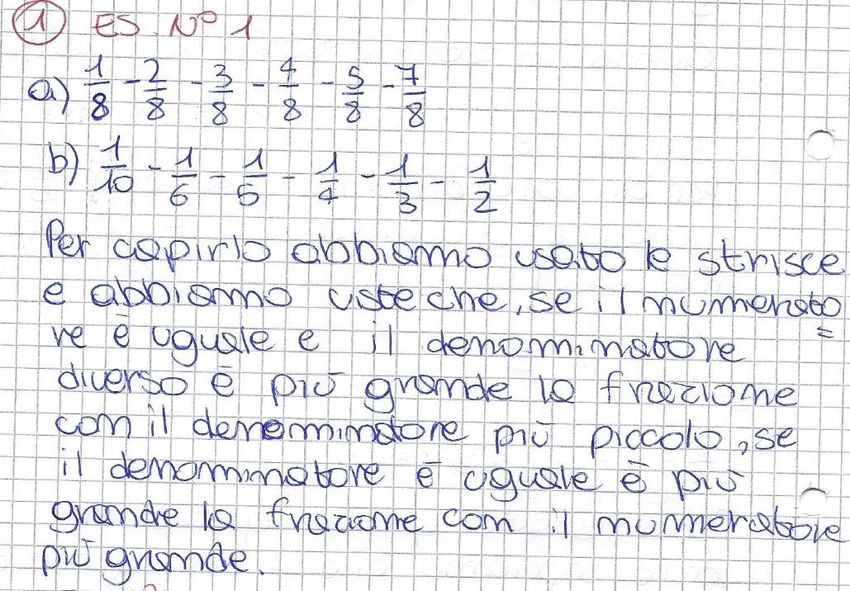 1 ES. N° 1
a) 1/8 - 2/8 - 3/8 - 4/8 - 5/8 - 7/8
b) 1/10 - 1/6 - 1/5 - 1/4 - 1/3 - 1/2
Per capirlo abbiamo usato le strisce
e abbiamo viste che, se il numerato
re è uguale e il denominatore
diverso è più grande la frazione
con il denominatore più piccolo, se
il denominatore è uguale è più
grande la frazione con il numeratore
più grande.